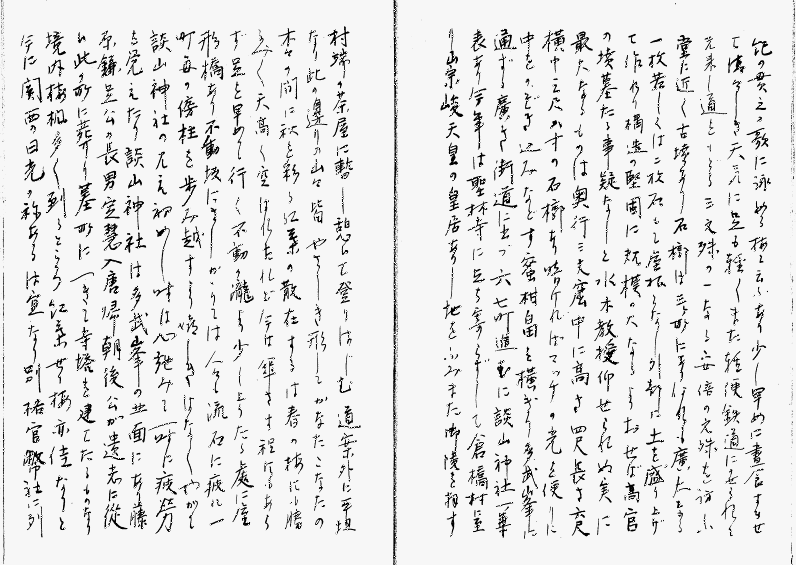 紀の貫之の歌に詠める梅と云ふあり少し早めに昼食すませ
て清き天気に足も軽くまた軽便鉄道に
日本三文殊の一なる安倍の文殊を訪ふ
堂に近く古墳あり石槨は三ヶ所に廣大なる
一枚若しくは二枚石もて屋根となし外部に土を盛り上げ
て作れり構造の堅固に規模の大なるより高官
の墳墓たる事疑なしと水木教授仰せられぬ実に
最大なるものは奥行三丈窟中に高さ四尺長さ六尺
横中三尺の石槨あり暗ければマッチの光を便りに
中をのぞき込みなどす蜜柑畠を横ぎり多武峯に
通ずる廣き街道に出づ六七町進むに談山神社一華
表あり今年は聖林寺に立ち寄らずして倉橋村に至
り崇峻天皇の皇居ありし地をふみまた御陵を拝す
村端の茶屋に暫し憩ひて登りはじむ道案外に平坦
なり此の邊りの山々皆やさしき形してかなたこなたの
木々の間に秋を彩る紅葉の散在するは春の梅にも勝る
天高く空はれたれど今は傘さす程
ず足を早めて行く不動の瀧より少し上りたる處に屋
形橋あり不動坂にさしかかりては人々流石に疲れ一
町毎の傍柱を歩み越す
談山神社の見え初めし時は心勇みて一時に疲労
を覚えたり談山神社は多武峯の北面にあり藤
原鎌足公の長男定慧入唐帰朝後公が遺志に従
ひ此の所に葬り墓所につきて寺塔を建てたるものなり
境内桜楓多く到るところ紅葉せり桜亦佳なりと
今に関西の日光の称あるは宜なり別格官幣社に列